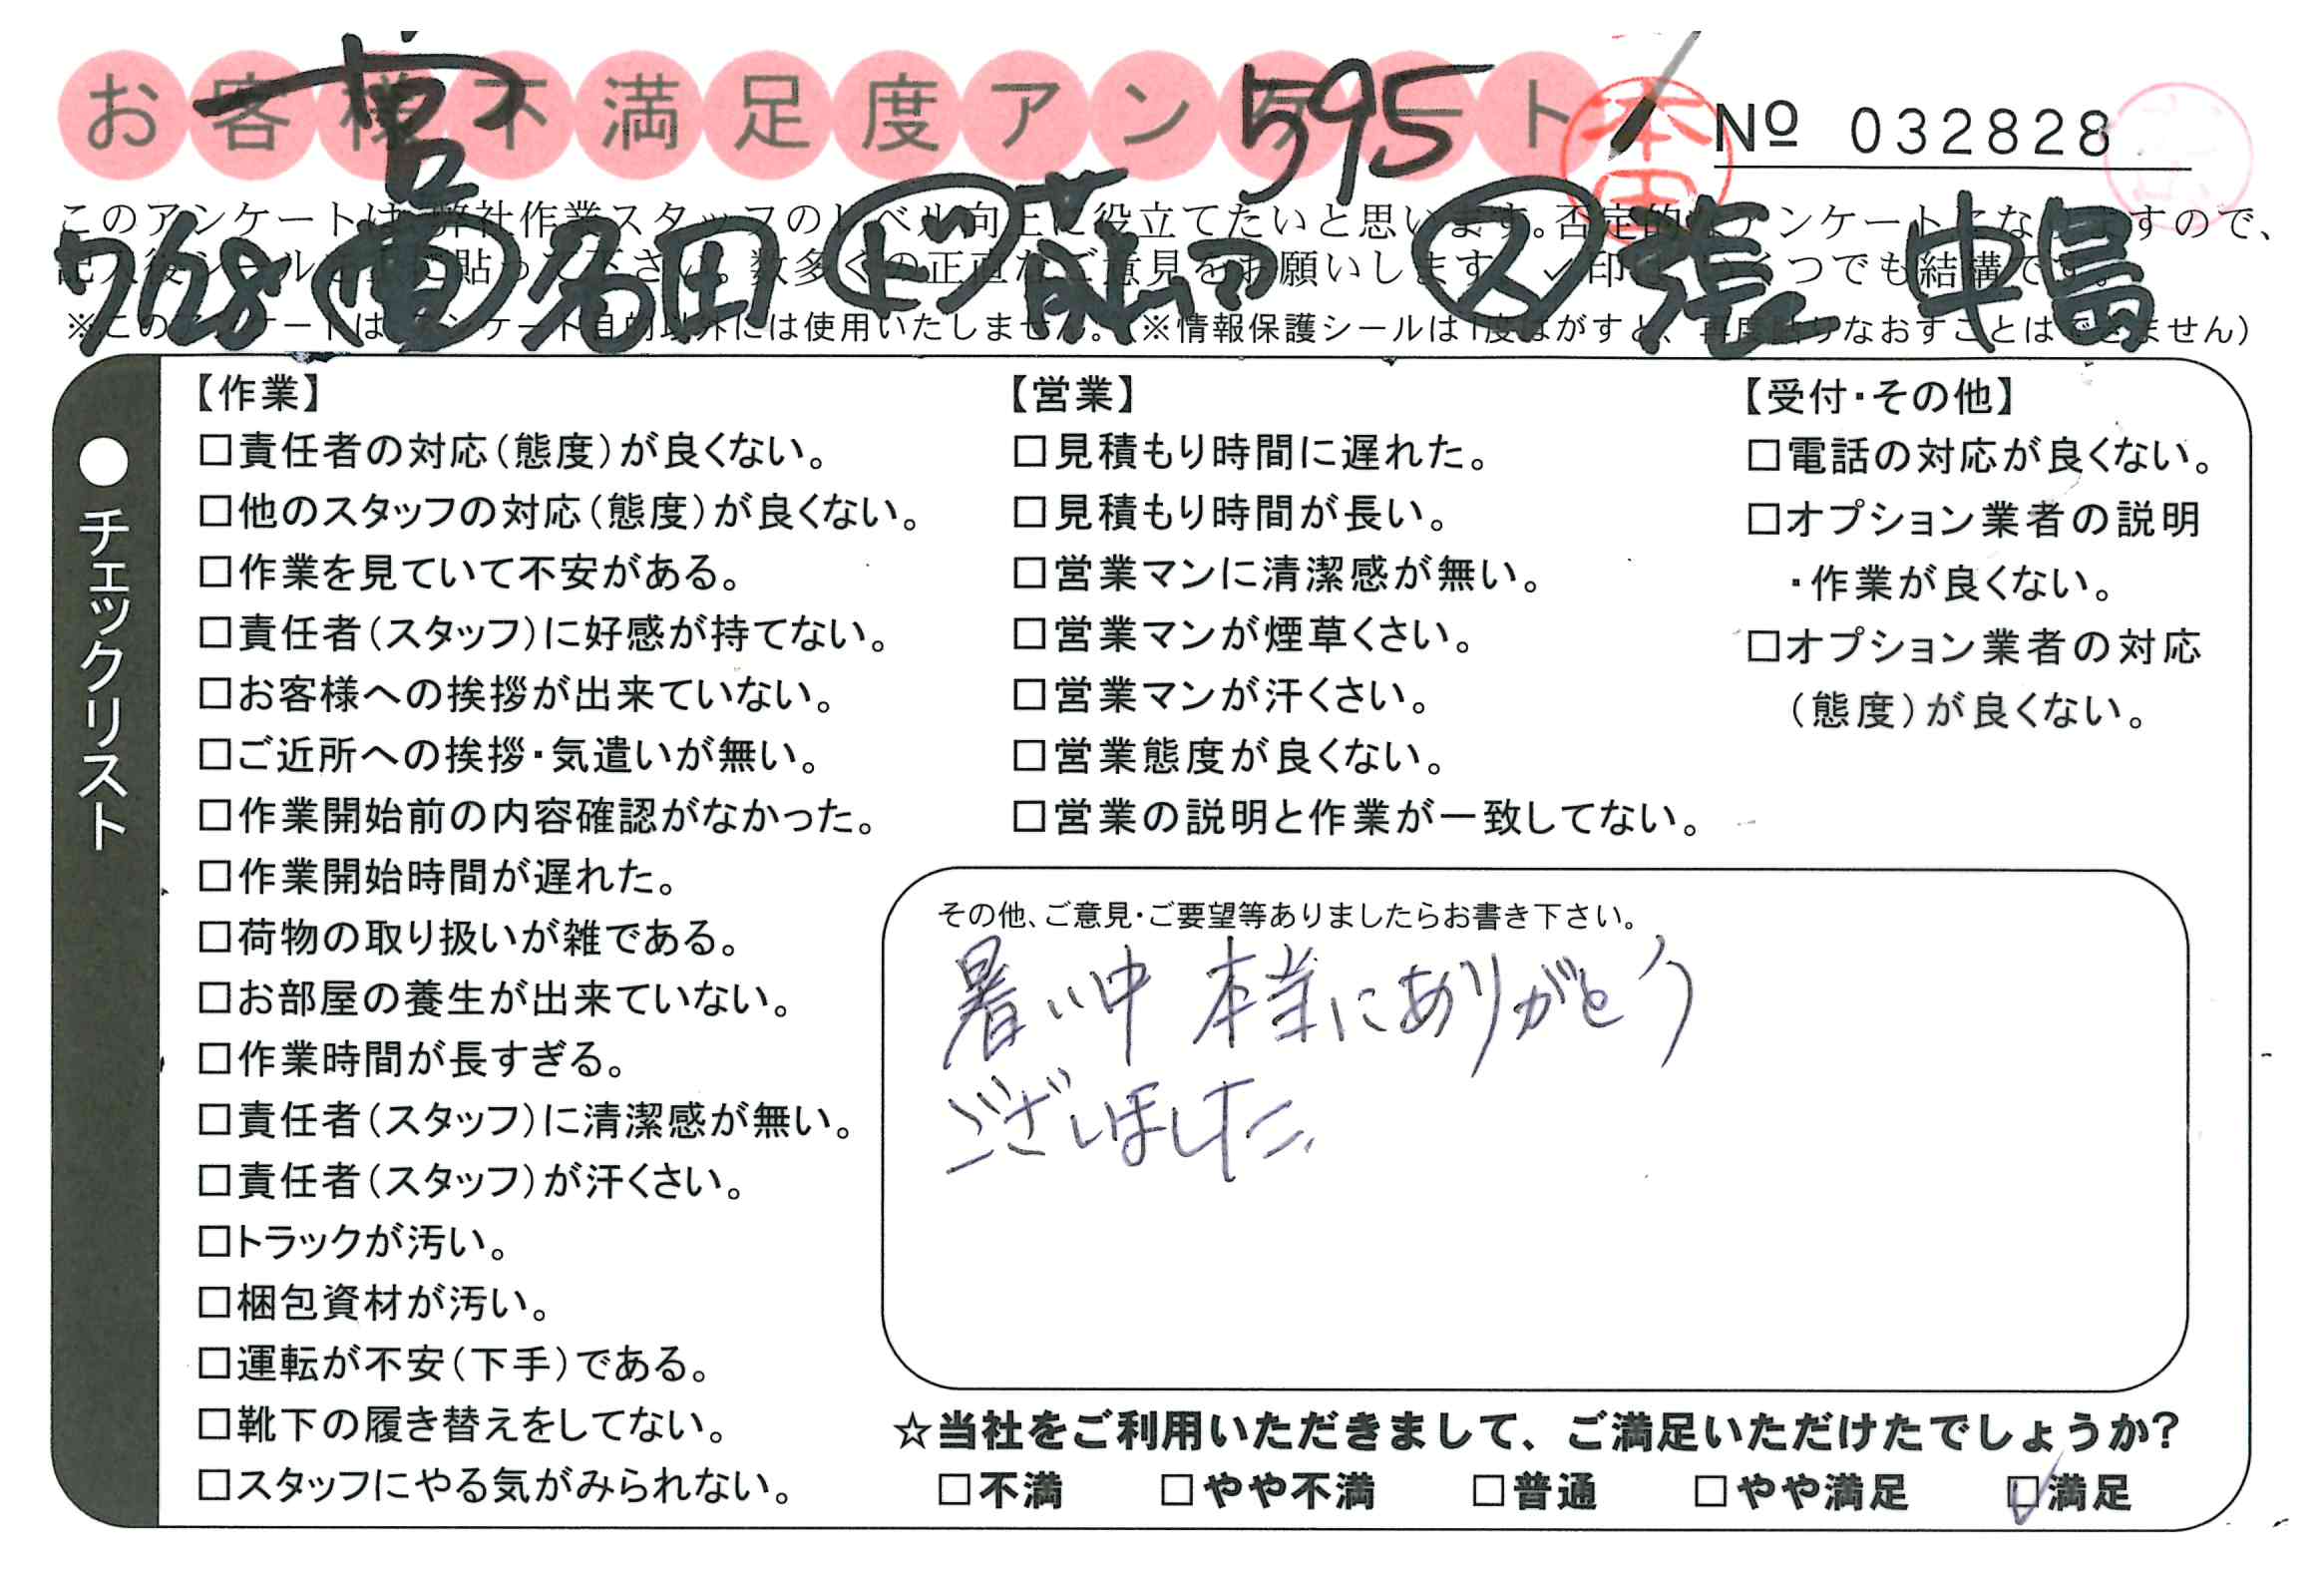 お客様不満足度アンケート
595
本田
№ 032828
このアンケートは、弊社作業スタッフのレベル向上に役立てたいと思います。否定的なアンケートになりますので、
記入後シールを貼って下さい。数多くの正直なご意見をお願いします。✓印はいくつでも結構です。
※このアンケートはアンケート目的以外には使用いたしません。(※情報保護シールは1度はがすと、再度貼りなおすことはできません)
7/28 名田 ド 張 中島
●チェックリスト
【作業】
□責任者の対応(態度)が良くない。
□他のスタッフの対応(態度)が良くない。
□作業を見ていて不安がある。
□責任者(スタッフ)に好感が持てない。
□お客様への挨拶が出来ていない。
□ご近所への挨拶・気遣いが無い。
□作業開始前の内容確認がなかった。
□作業開始時間が遅れた。
□荷物の取り扱いが雑である。
□お部屋の養生が出来ていない。
□作業時間が長すぎる。
□責任者(スタッフ)に清潔感が無い。
□責任者(スタッフ)が汗くさい。
□トラックが汚い。
□梱包資材が汚い。
□運転が不安(下手)である。
□靴下の履き替えをしてない。
□スタッフにやる気がみられない。
【営業】
□見積もり時間に遅れた。
□見積もり時間が長い。
□営業マンに清潔感が無い。
□営業マンが煙草くさい。
□営業マンが汗くさい。
□営業態度が良くない。
□営業の説明と作業が一致してない。
【受付・その他】
□電話の対応が良くない。
□オプション業者の説明
・作業が良くない。
□オプション業者の対応
(態度)が良くない。
その他、ご意見・ご要望等ありましたらお書き下さい。
暑い中 本当にありがとう
ございました。
☆当社をご利用いただきまして、ご満足いただけたでしょうか?
□不満 □やや不満 □普通 □やや満足 ☑満足